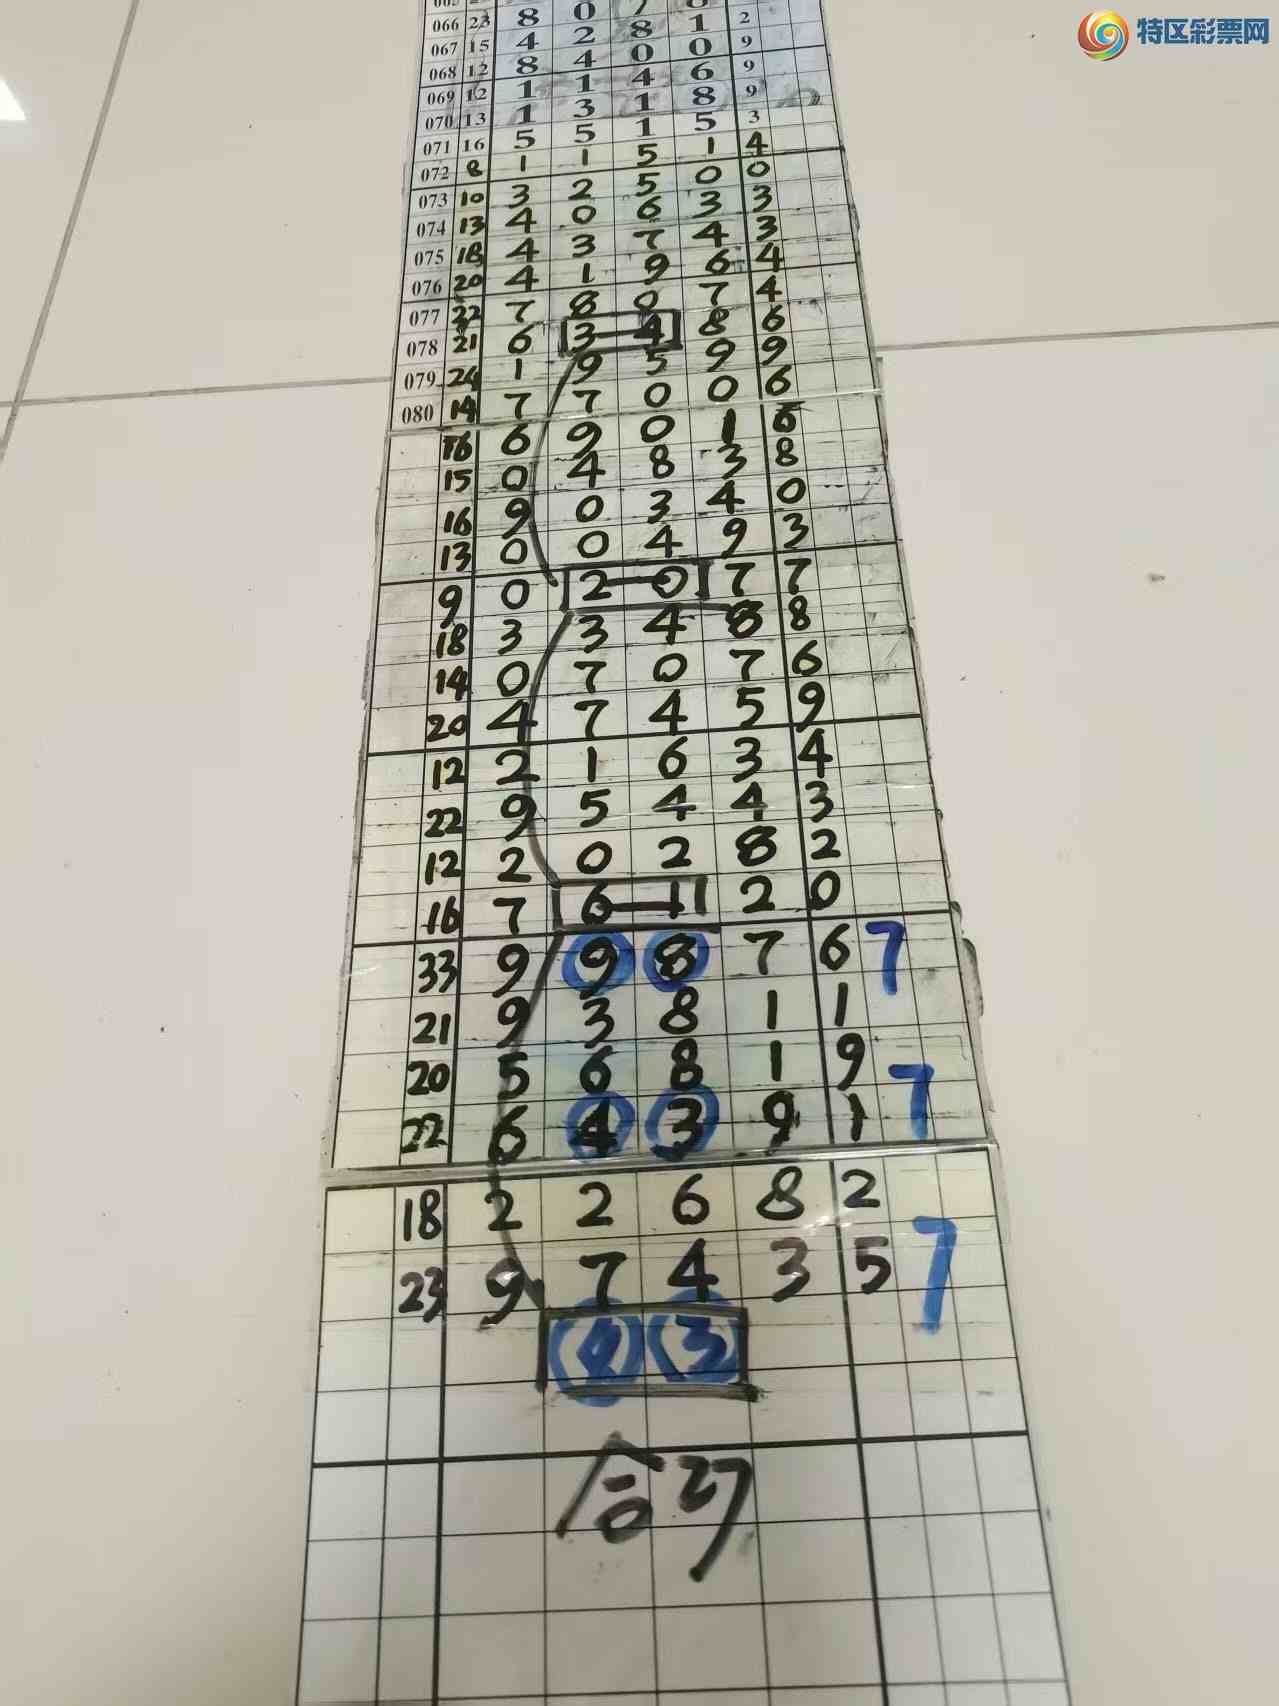 特区彩票网
066 23 8 0 7 8 2
067 15 4 2 8 1 9
068 12 8 4 0 0 9
069 12 1 1 4 6 9
070 13 1 3 1 8 3
071 16 5 5 1 5 4
072 8 1 1 5 1 0
073 10 3 2 5 0 3
074 13 4 0 6 3 3
075 18 4 3 7 4 4
076 20 4 1 9 6 4
077 22 7 8 0 7 6
078 21 6 3 4 8 9
079 24 1 9 5 9 6
080 14 7 7 0 0 6
16 6 9 0 1 8
15 0 4 8 3 0
16 9 0 3 4 3
13 0 0 4 9
9 0 2 0 7 7
18 3 3 4 8 8
14 0 7 0 7 6
20 4 7 4 5 9
12 2 1 6 3 4
22 9 5 4 4 3
12 2 0 2 8 2
16 7 6 1 2 0
33 9 9 8 7 6 7
21 9 3 8 1 1
20 5 6 8 1 9
22 6 4 3 9 1 7
18 2 2 6 8 2
23 9 7 4 3 5 7
8 3
合27